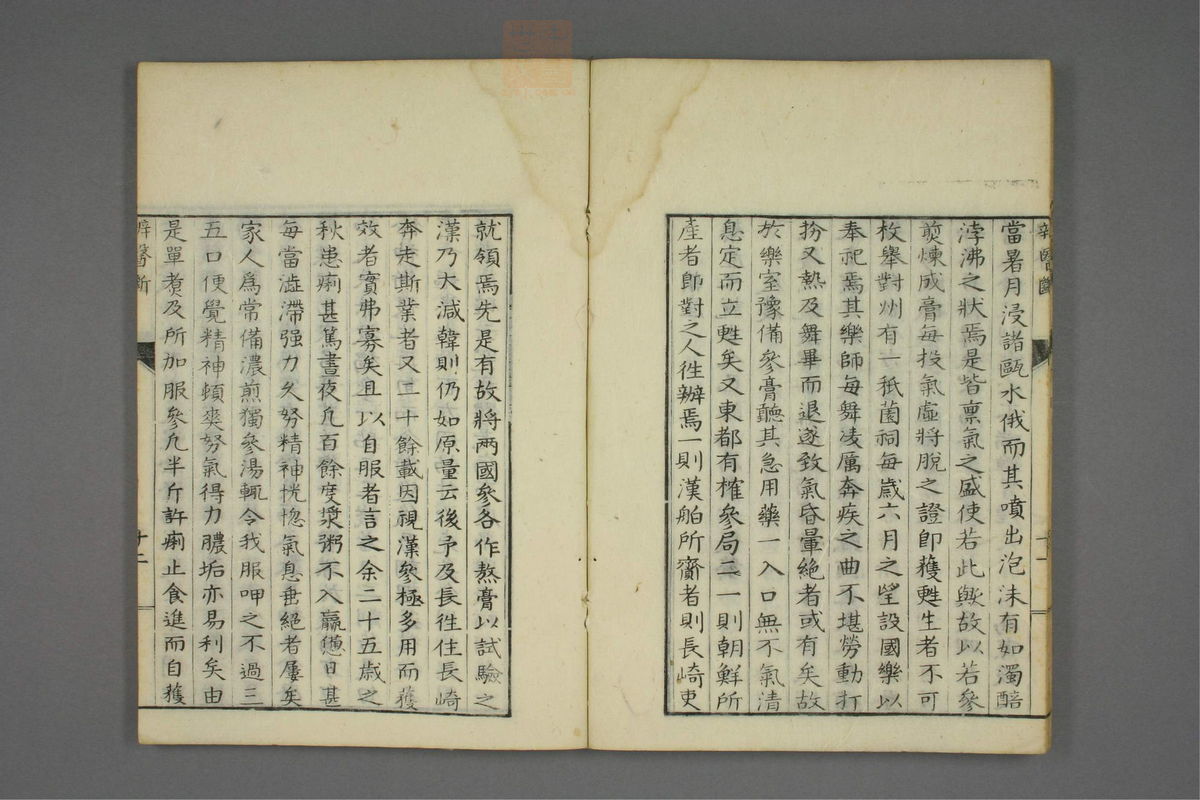 當暑月浸諸甌水俄而其噴出泡沫有如濁醅
浡沸之狀焉是皆禀氣之盛使若此歟故以若參
煎煉成膏每投氣虛將脫之證卽獲甦生者不可
枚舉對州有一祇園祠每歲六月之望設國樂以
奉祀焉其樂師每舞凌厲奔疾之曲不堪勞動打
扮又熱及舞畢而退遂致氣昏暈絕者或有矣故
於樂室豫備參膏聽其急用藥一入口無不氣清
息定而立甦矣又東都有榷參局二一則朝鮮所
產者卽對之人徃辦焉一則漢舶所齎者則長崎吏
就領焉先是有故將兩國參各作熬膏以試驗之
漢乃大減韓則仍如原量云後予及長徃住長崎
奔走斯業者又二十餘載因視漢參極多用而獲
效者實弗寡矣且以自服者言之余二十五歲之
秋患痢甚篤晝夜凢百餘度漿粥不入羸憊日甚
每當澁滯强力久努精神恍惚氣息垂絕者屢矣
家人爲常備濃煎獨參湯輒令我服呷之不過三
五口便覺精神頓爽努氣得力膿垢亦易利矣由
是單煑及所加服參凢半斤許痢止食進而自獲
辨醫斷
十二